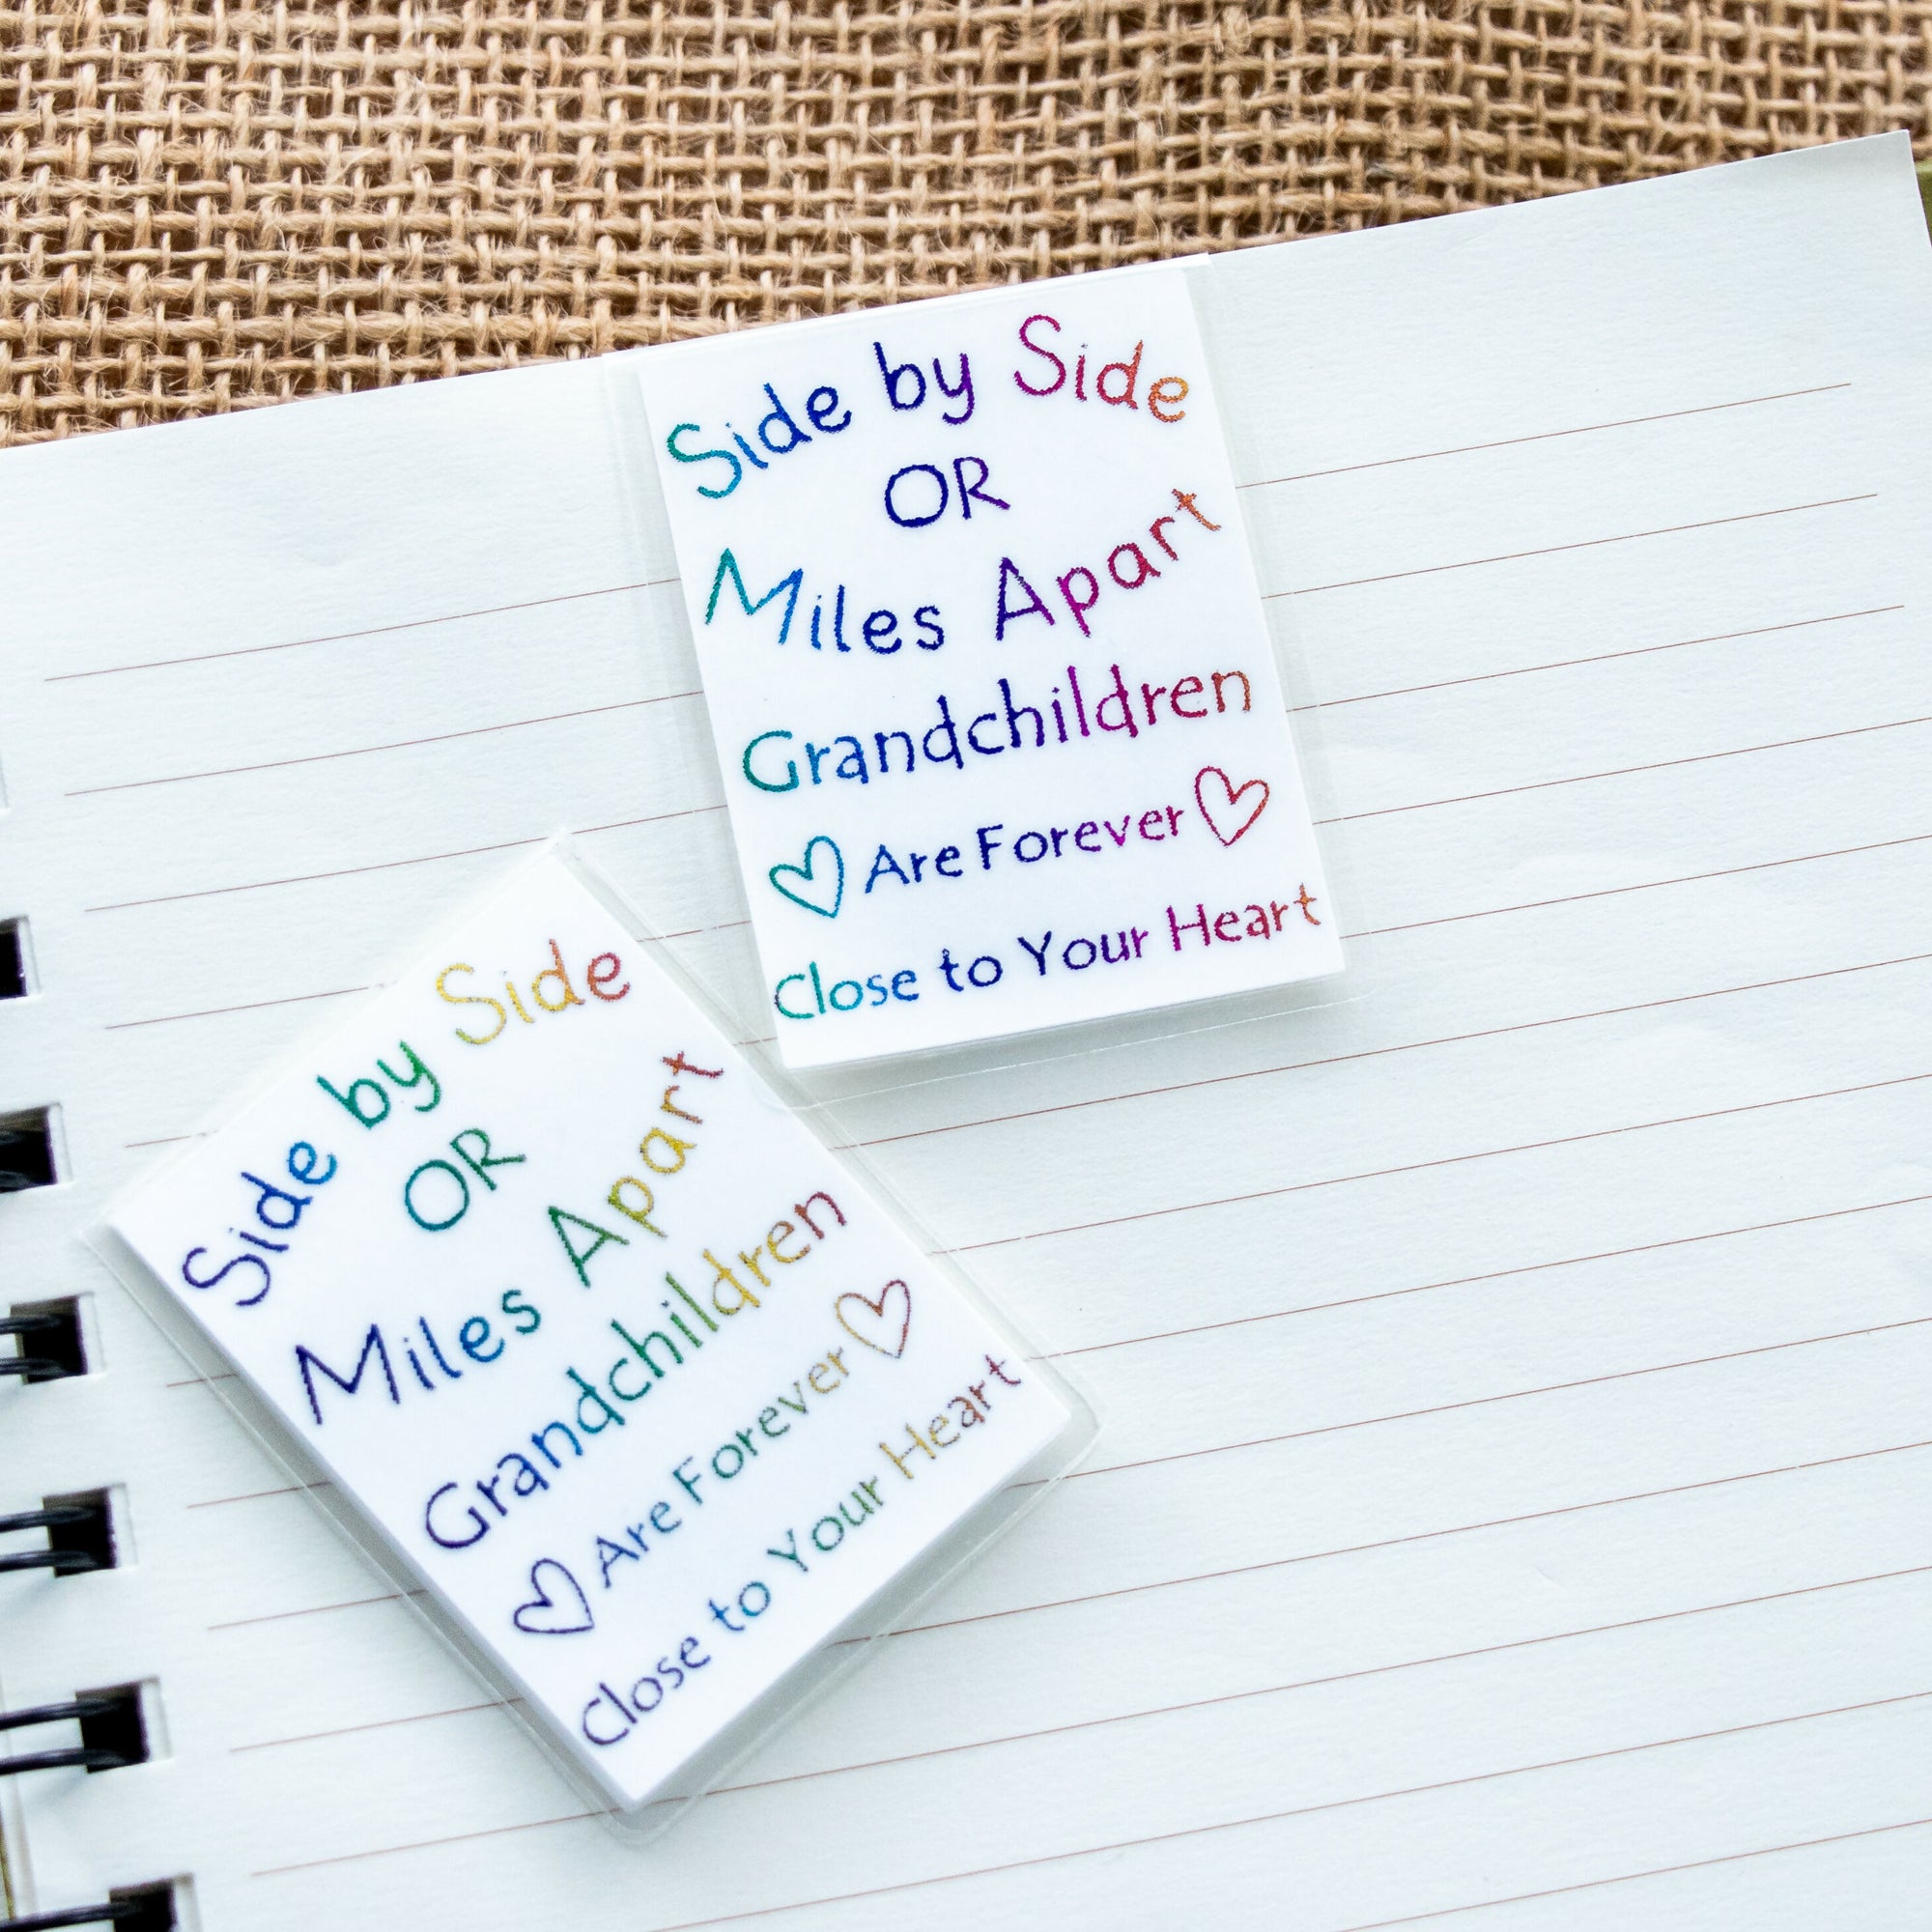 Side by Side
OR
Miles Apart
Grandchildren
Are Forever
Close to Your Heart
Side by Side
OR
Miles Apart
Grandchildren
Are Forever
Close to Your Heart